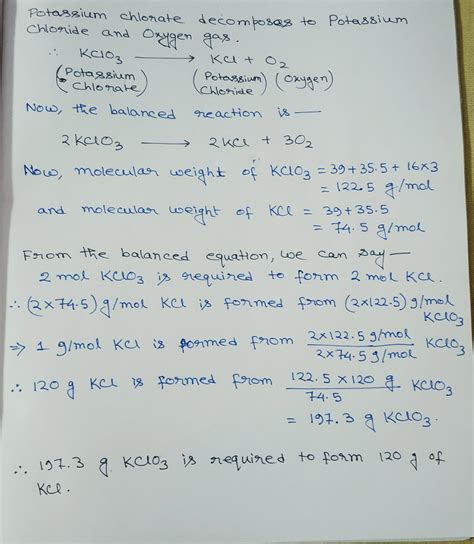 Potassium chlorate decomposes to Potassium
Chloride and Oxygen gas.
∴ KClO3 ⟶ KCl + O2
(Potassium Chlorate) (Potassium Chloride) (Oxygen)
Now, the balanced reaction is —
2KClO3 ⟶ 2KCl + 3O2
Now, molecular weight of KClO3 = 39+35.5+16×3
= 122.5 g/mol
and molecular weight of KCl = 39+35.5
= 74.5 g/mol
From the balanced equation, we can say —
2 mol KClO3 is required to form 2 mol KCl.
∴ (2×74.5) g/mol KCl is formed from (2×122.5) g/mol
KClO3
⇒ 1 g/mol KCl is formed from (2×122.5 g/mol)/(2×74.5 g/mol) KClO3
∴ 120 g KCl is formed from (122.5×120 g)/74.5 KClO3
= 197.3 g KClO3.
∴ 197.3 g KClO3 is required to form 120 g of
KCl.